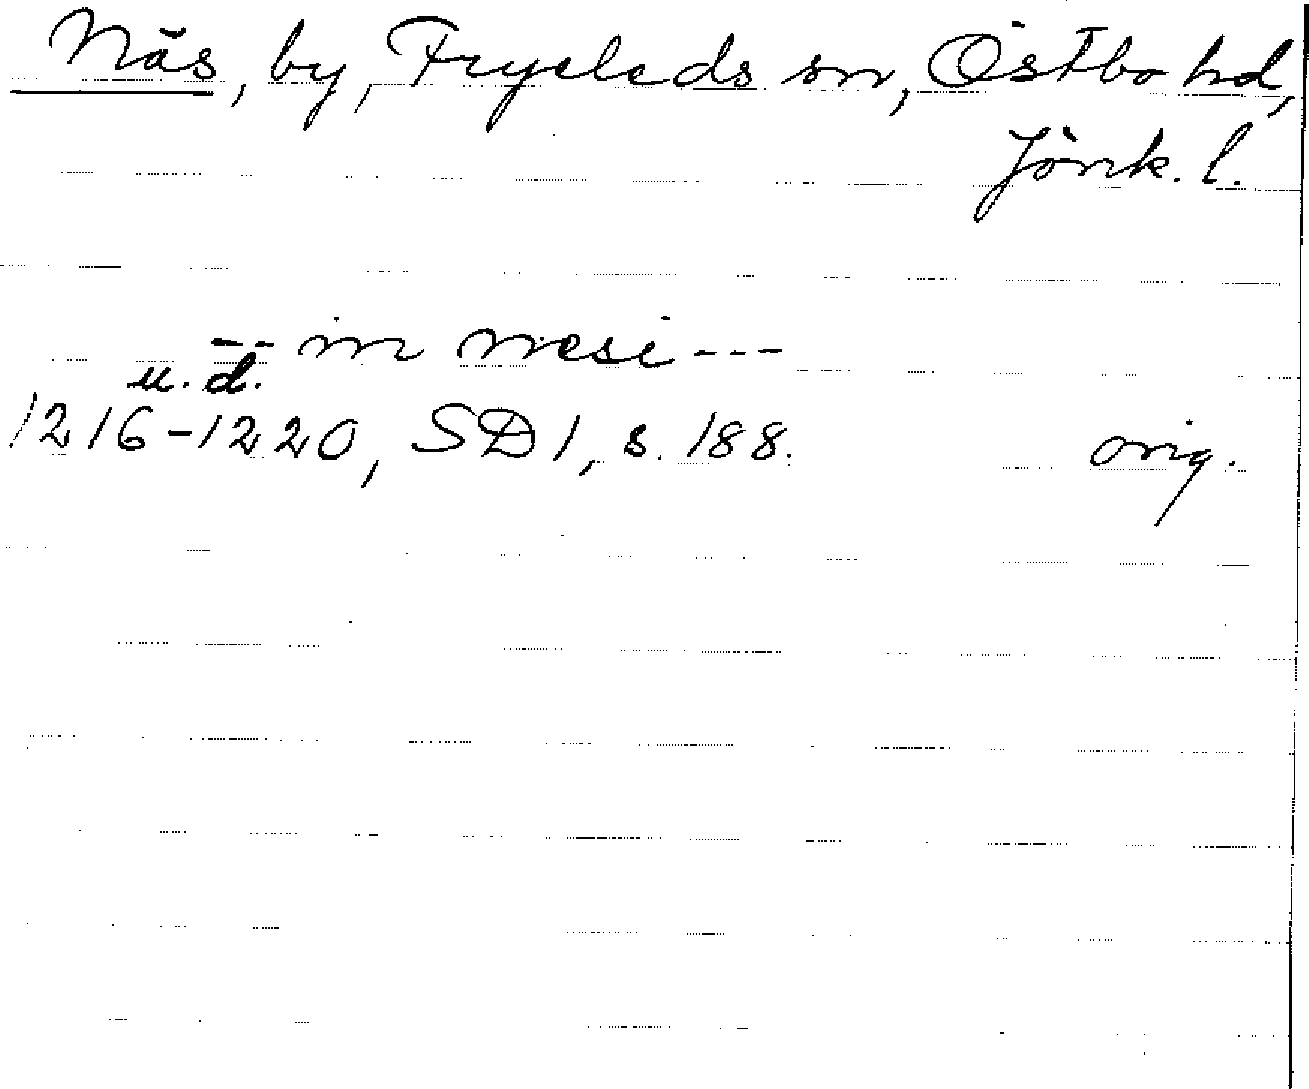 Näs, by, Fryeleds sn, Östbo hd,
Jönk. l.
-- in nesi ---
u. d.
1216-1220, SD 1, s. 188. orig.